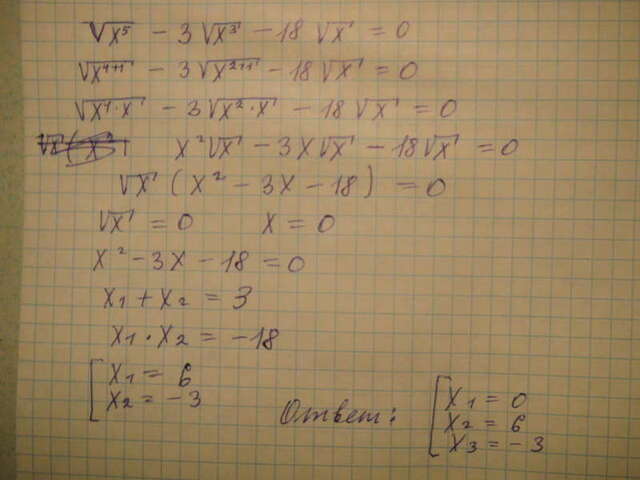 √x⁵ - 3√x³ - 18√x = 0
√x⁴⁺¹ - 3√x²⁺¹ - 18√x = 0
√x⁴·x - 3√x²·x - 18√x = 0
x²√x - 3x√x - 18√x = 0
√x (x² - 3x - 18) = 0
√x = 0 x = 0
x² - 3x - 18 = 0
x₁ + x₂ = 3
x₁ · x₂ = -18
x₁ = 6
x₂ = -3
Ответ:
x₁ = 0
x₂ = 6
x₃ = -3